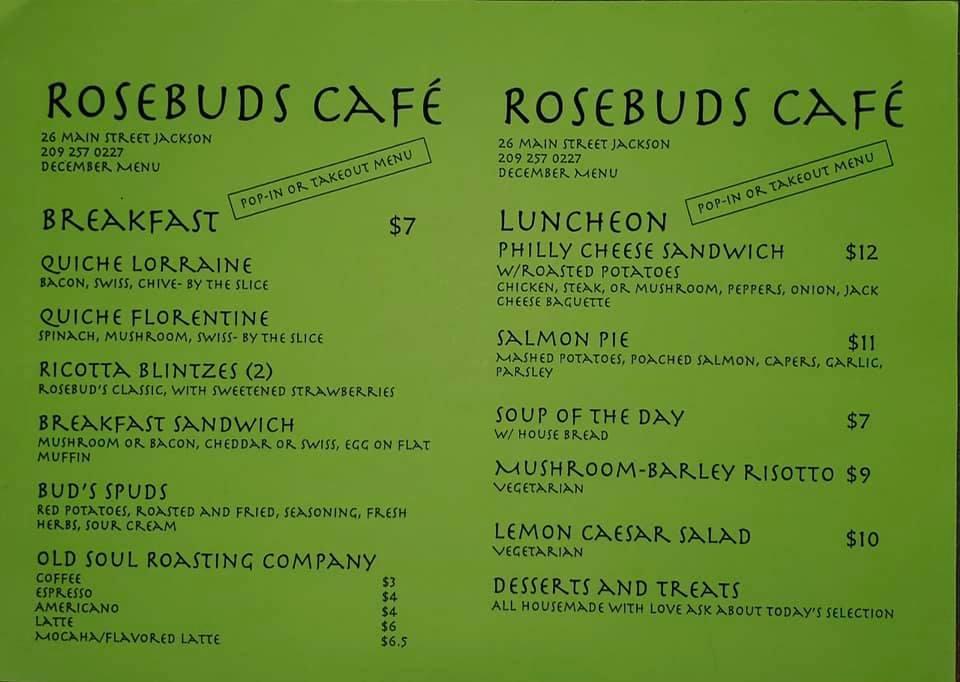 ROSEBUDS CAFÉ
26 MAIN STREET JACKSON
209 257 0227
DECEMBER MENU
POP-IN OR TAKEOUT MENU
BREAKFAST $7
QUICHE LORRAINE
BACON, SWISS, CHIVE- BY THE SLICE
QUICHE FLORENTINE
SPINACH, MUSHROOM, SWISS- BY THE SLICE
RICOTTA BLINTZES (2)
ROSEBUD'S CLASSIC, WITH SWEETENED STRAWBERRIES
BREAKFAST SANDWICH
MUSHROOM OR BACON, CHEDDAR OR SWISS, EGG ON FLAT
MUFFIN
BUD'S SPUDS
RED POTATOES, ROASTED AND FRIED, SEASONING, FRESH
HERBS, SOUR CREAM
OLD SOUL ROASTING COMPANY
COFFEE $3
ESPRESSO $4
AMERICANO $4
LATTE $6
MOCAHA/FLAVORED LATTE $6.5
ROSEBUDS CAFÉ
26 MAIN STREET JACKSON
209 257 0227
DECEMBER MENU
POP-IN OR TAKEOUT MENU
LUNCHEON
PHILLY CHEESE SANDWICH $12
W/ROASTED POTATOES
CHICKEN, STEAK, OR MUSHROOM, PEPPERS, ONION, JACK
CHEESE BAGUETTE
SALMON PIE $11
MASHED POTATOES, POACHED SALMON, CAPERS, GARLIC,
PARSLEY
SOUP OF THE DAY $7
W/ HOUSE BREAD
MUSHROOM-BARLEY RISOTTO $9
VEGETARIAN
LEMON CAESAR SALAD $10
VEGETARIAN
DESSERTS AND TREATS
ALL HOUSEMADE WITH LOVE ASK ABOUT TODAY'S SELECTION